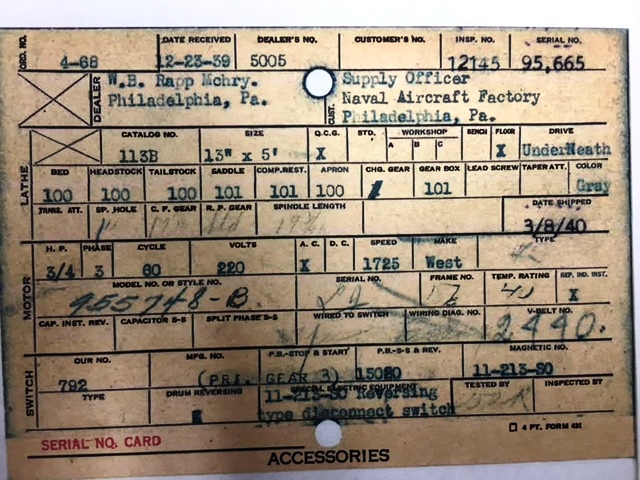 ORD. NO. 4-68 DATE RECEIVED 12-23-39 DEALER'S NO. 5005 CUSTOMER'S NO. INSP. NO. 12145 SERIAL NO. 95,665
DEALER W.B. Rapp Mchry. CUST. Supply Officer
Philadelphia, Pa. Naval Aircraft Factory
Philadelphia, Pa.
LATHE
CATALOG NO. SIZE Q.C.G. STD. WORKSHOP A B C BENCH FLOOR DRIVE
113B 13" x 5' X X UnderNeath
BED HEADSTOCK TAILSTOCK SADDLE COMP.REST. APRON CHG. GEAR GEAR BOX LEAD SCREW TAPER ATT. COLOR
100 100 100 101 101 100 1 101 Gray
TRANS. ATT. SP. HOLE C. F. GEAR R. P. GEAR SPINDLE LENGTH DATE SHIPPED
3/8/40
MOTOR
H. P. PHASE CYCLE VOLTS A. C. D. C. SPEED MAKE TYPE
3/4 3 60 220 X 1725 West
MODEL NO. OR STYLE NO. SERIAL NO. FRAME NO. TEMP. RATING REP. IND. INST.
955748-B 40 X
CAP. INST. REV. CAPACITOR S-S SPLIT PHASE S-S WIRED TO SWITCH WIRING DIAG. NO. V-BELT NO.
2440.
SWITCH
OUR NO. MFG. NO. P.B.-STOP & START P.B.-S-S & REV. MAGNETIC NO.
792 (PRI. GEAR 3) 15020 11-213-SO
TYPE DRUM REVERSING SPECIAL ELECTRIC EQUIPMENT TESTED BY INSPECTED BY
11-213-SO Reversing
type disconnect switch
SERIAL NO. CARD 4 PT. FORM 4M
ACCESSORIES